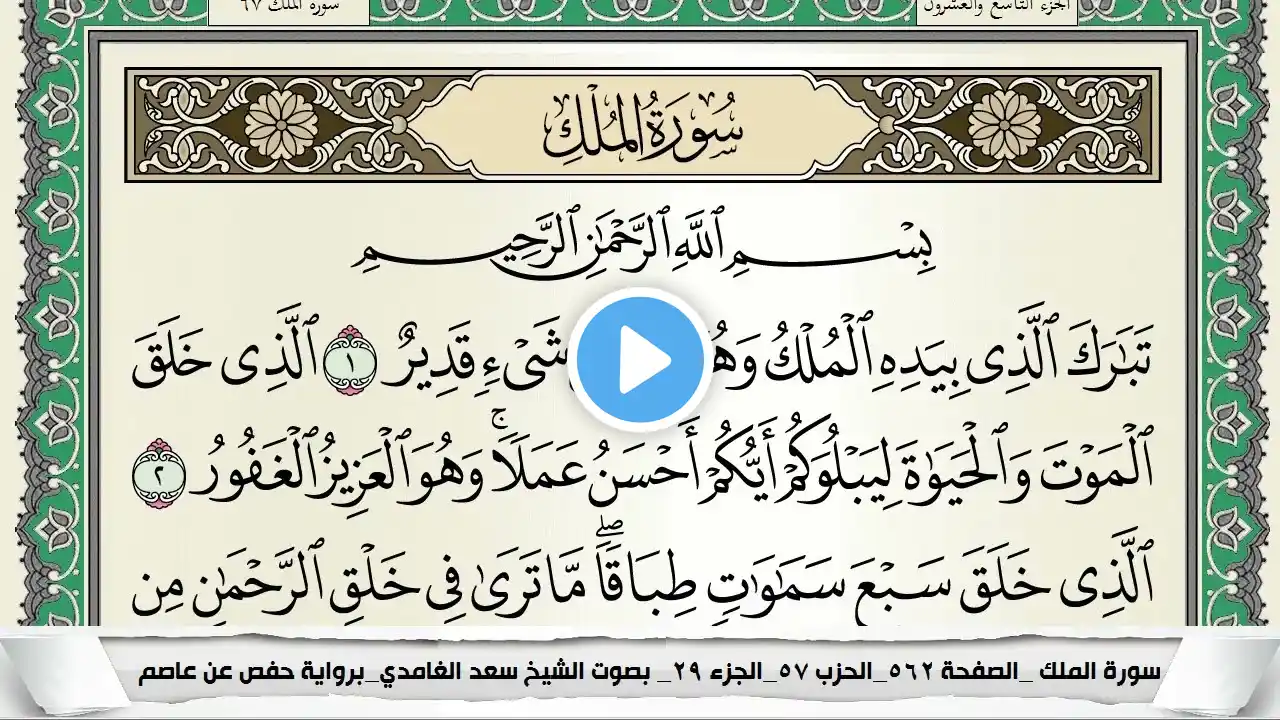 سورة الملك ٦٧
الجزء التاسع والعشرون
سُورَةُ المُلْكِ
بِسْمِ ٱللَّهِ ٱلرَّحْمَٰنِ ٱلرَّحِيمِ
تَبَٰرَكَ ٱلَّذِى بِيَدِهِ ٱلْمُلْكُ وَهُ شَىْءٍ قَدِيرٌ ١ ٱلَّذِى خَلَقَ
ٱلْمَوْتَ وَٱلْحَيَوٰةَ لِيَبْلُوَكُمْ أَيُّكُمْ أَحْسَنُ عَمَلًا ۚ وَهُوَ ٱلْعَزِيزُ ٱلْغَفُورُ ٢
ٱلَّذِى خَلَقَ سَبْعَ سَمَٰوَٰتٍ طِبَاقًا ۖ مَّا تَرَىٰ فِى خَلْقِ ٱلرَّحْمَٰنِ مِن
سورة الملك _الصفحة ٥٦٢_الحزب ٥٧_الجزء ٢٩_ بصوت الشيخ سعد الغامدي_برواية حفص عن عاصم